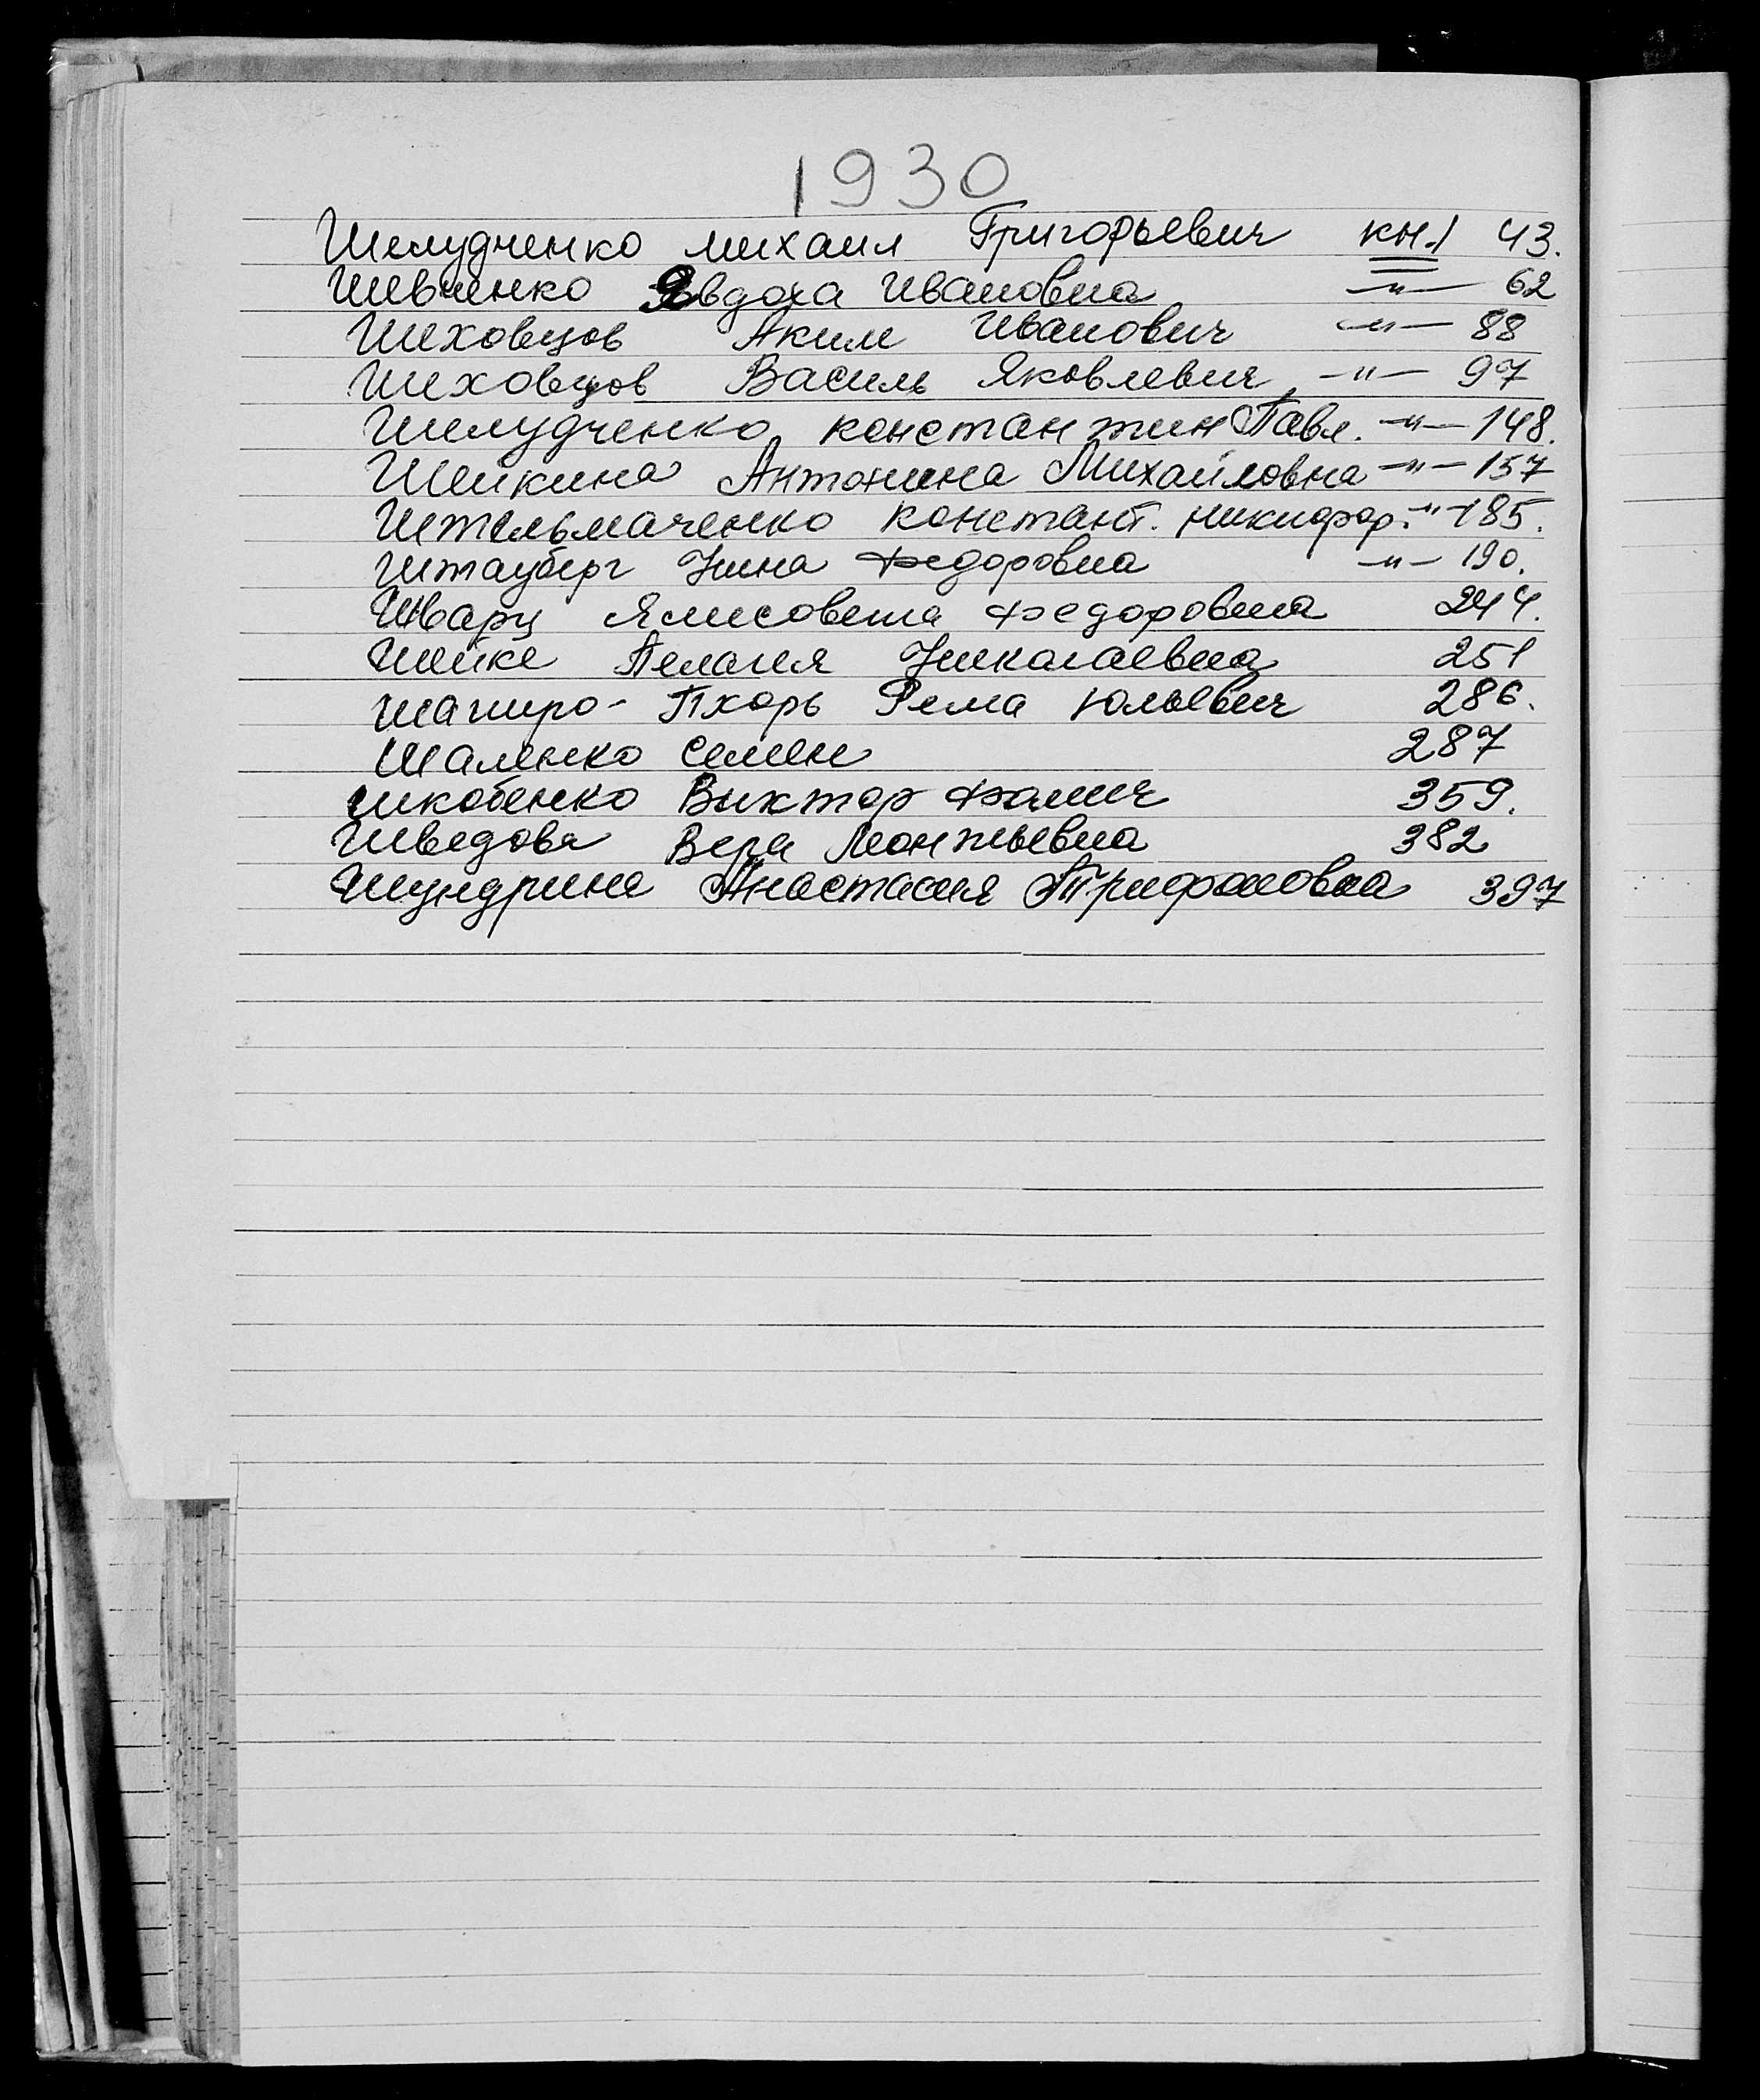 1930
Шелудченко Михаил Григорьевич кн.1 43.
Шевченко Явдоха Ивановна —"— 62
Шеховцов Аким Иванович —"— 88
Шеховцов Василь Яковлевич —"— 97
Шелудченко Константин Павл. —"— 148.
Шейкина Антонина Михайловна —"— 157
Штельмаченко Констант. Никифор. —"— 185.
Штауберг Нина Федоровна —"— 190.
Шварц Ялисовета Федоровна 244.
Шейке Пелагия Николаевна 251
Шапиро- Пхорь Рема Юльевич 286.
Шаленко Семен 287
Шкобенко Виктор Фомич 359.
Шведова Вера Леонтьевна 382
Шундрина Анастасия Трифоновна 397